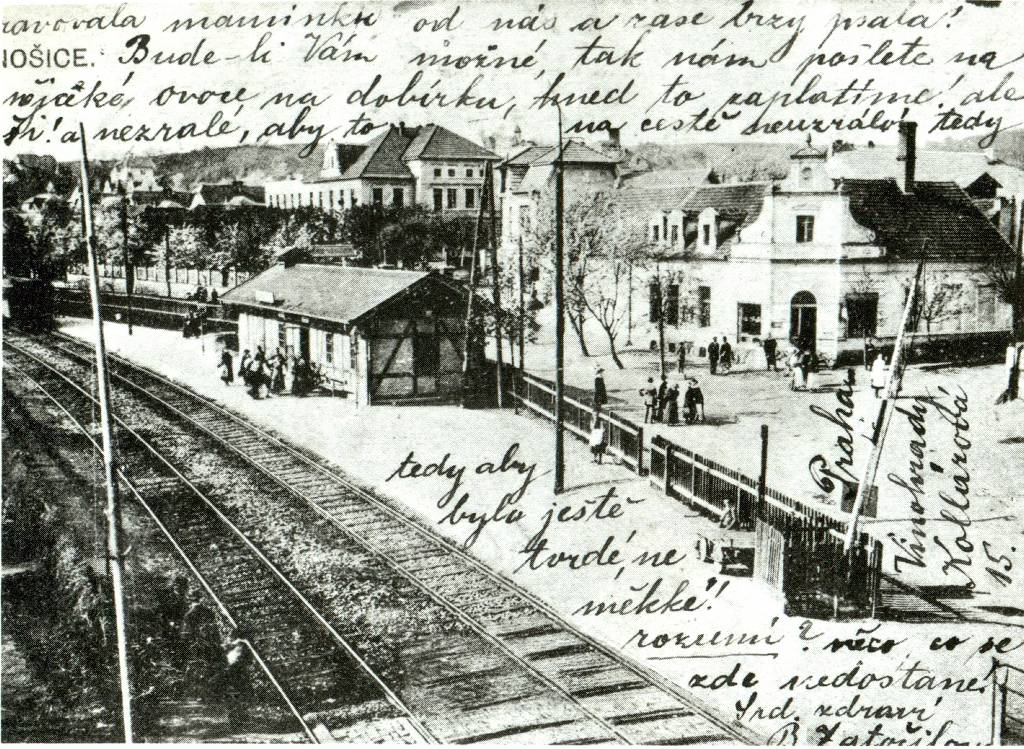 maminku od nás a zase brzy psala!
NOŠICE. Bude-li Vám možné, tak nám pošlete na
ovoce, na dobírku, hned to zaplatíme! ale
a nezralé, aby to na cestě neuzrálo! tedy
tedy aby
bylo ještě
tvrdé, ne
měkké!
rozumí? něco, co se
zde nedostane!
Srd. zdraví
B.
Praha
Vinohrady
Kollárova
15.